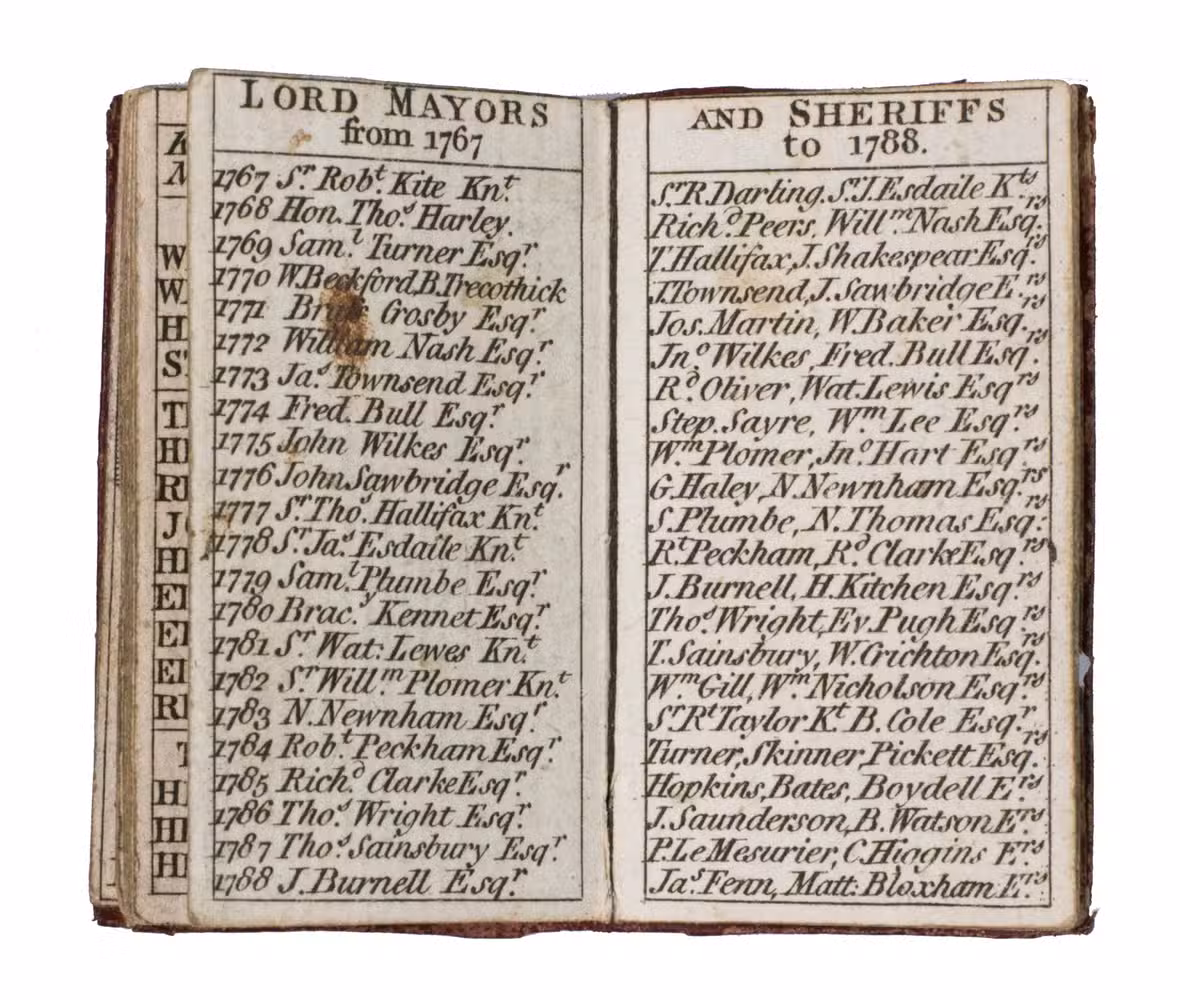 LORD MAYORS
from 1767
1767 Sr. Robt. Kite Knt.
1768 Hon. Thos. Harley.
1769 Saml. Turner Esqr.
1770 W. Beckford, B. Trecothick
1771 Crosby Esqr.
1772 William Nash Esqr.
1773 Jas. Townsend Esqr.
1774 Fred. Bull Esqr.
1775 John Wilkes Esqr.
1776 John Sawbridge Esqr.
1777 Sr. Thos. Hallifax Knt.
1778 Sr. Jas. Esdaile Knt.
1779 Saml. Plumbe Esqr.
1780 Bracs. Kennet Esqr.
1781 Sr. Wat: Lewes Knt.
1782 Sr. Willm. Plomer Knt.
1783 N. Newnham Esqr.
1784 Robt. Peckham Esqr.
1785 Richd. Clarke Esqr.
1786 Thos. Wright Esqr.
1787 Thos. Sainsbury Esqr.
1788 J. Burnell Esqr.
AND SHERIFFS
to 1788.
Sr. R. Darling. Sr. J. Esdaile Kts.
Richd. Peers, Willm. Nash Esqrs.
T. Hallifax, J. Shakespear Esqrs.
J. Townsend, J. Sawbridge Ers.
Jos. Martin, W. Baker Esqrs.
Jno. Wilkes, Fred. Bull Esqrs.
Rd. Oliver, Wat. Lewis Esqrs
Step. Sayre, Wm. Lee Esqrs.
Wm. Plomer, Jno. Hart Esqrs.
G. Haley, N. Newnham Esqrs.
S. Plumbe, N. Thomas Esqrs:
Rt. Peckham, Rd. Clarke Esqrs.
J. Burnell, H. Kitchen Esqrs.
Thos. Wright, Ev. Pugh Esqrs.
T. Sainsbury, W. Crichton Esqrs.
Wm. Gill, Wm. Nicholson Esqrs.
Sr. Rt. Taylor Kt. B. Cole Esqr.
Turner, Skinner, Pickett Esqrs.
Hopkins, Bates, Boydell Ers.
J. Saunderson, B. Watson Ers.
P. Le Mesurier, C. Higgins Ers.
Jas. Fenn, Matt: Bloxham Ers.